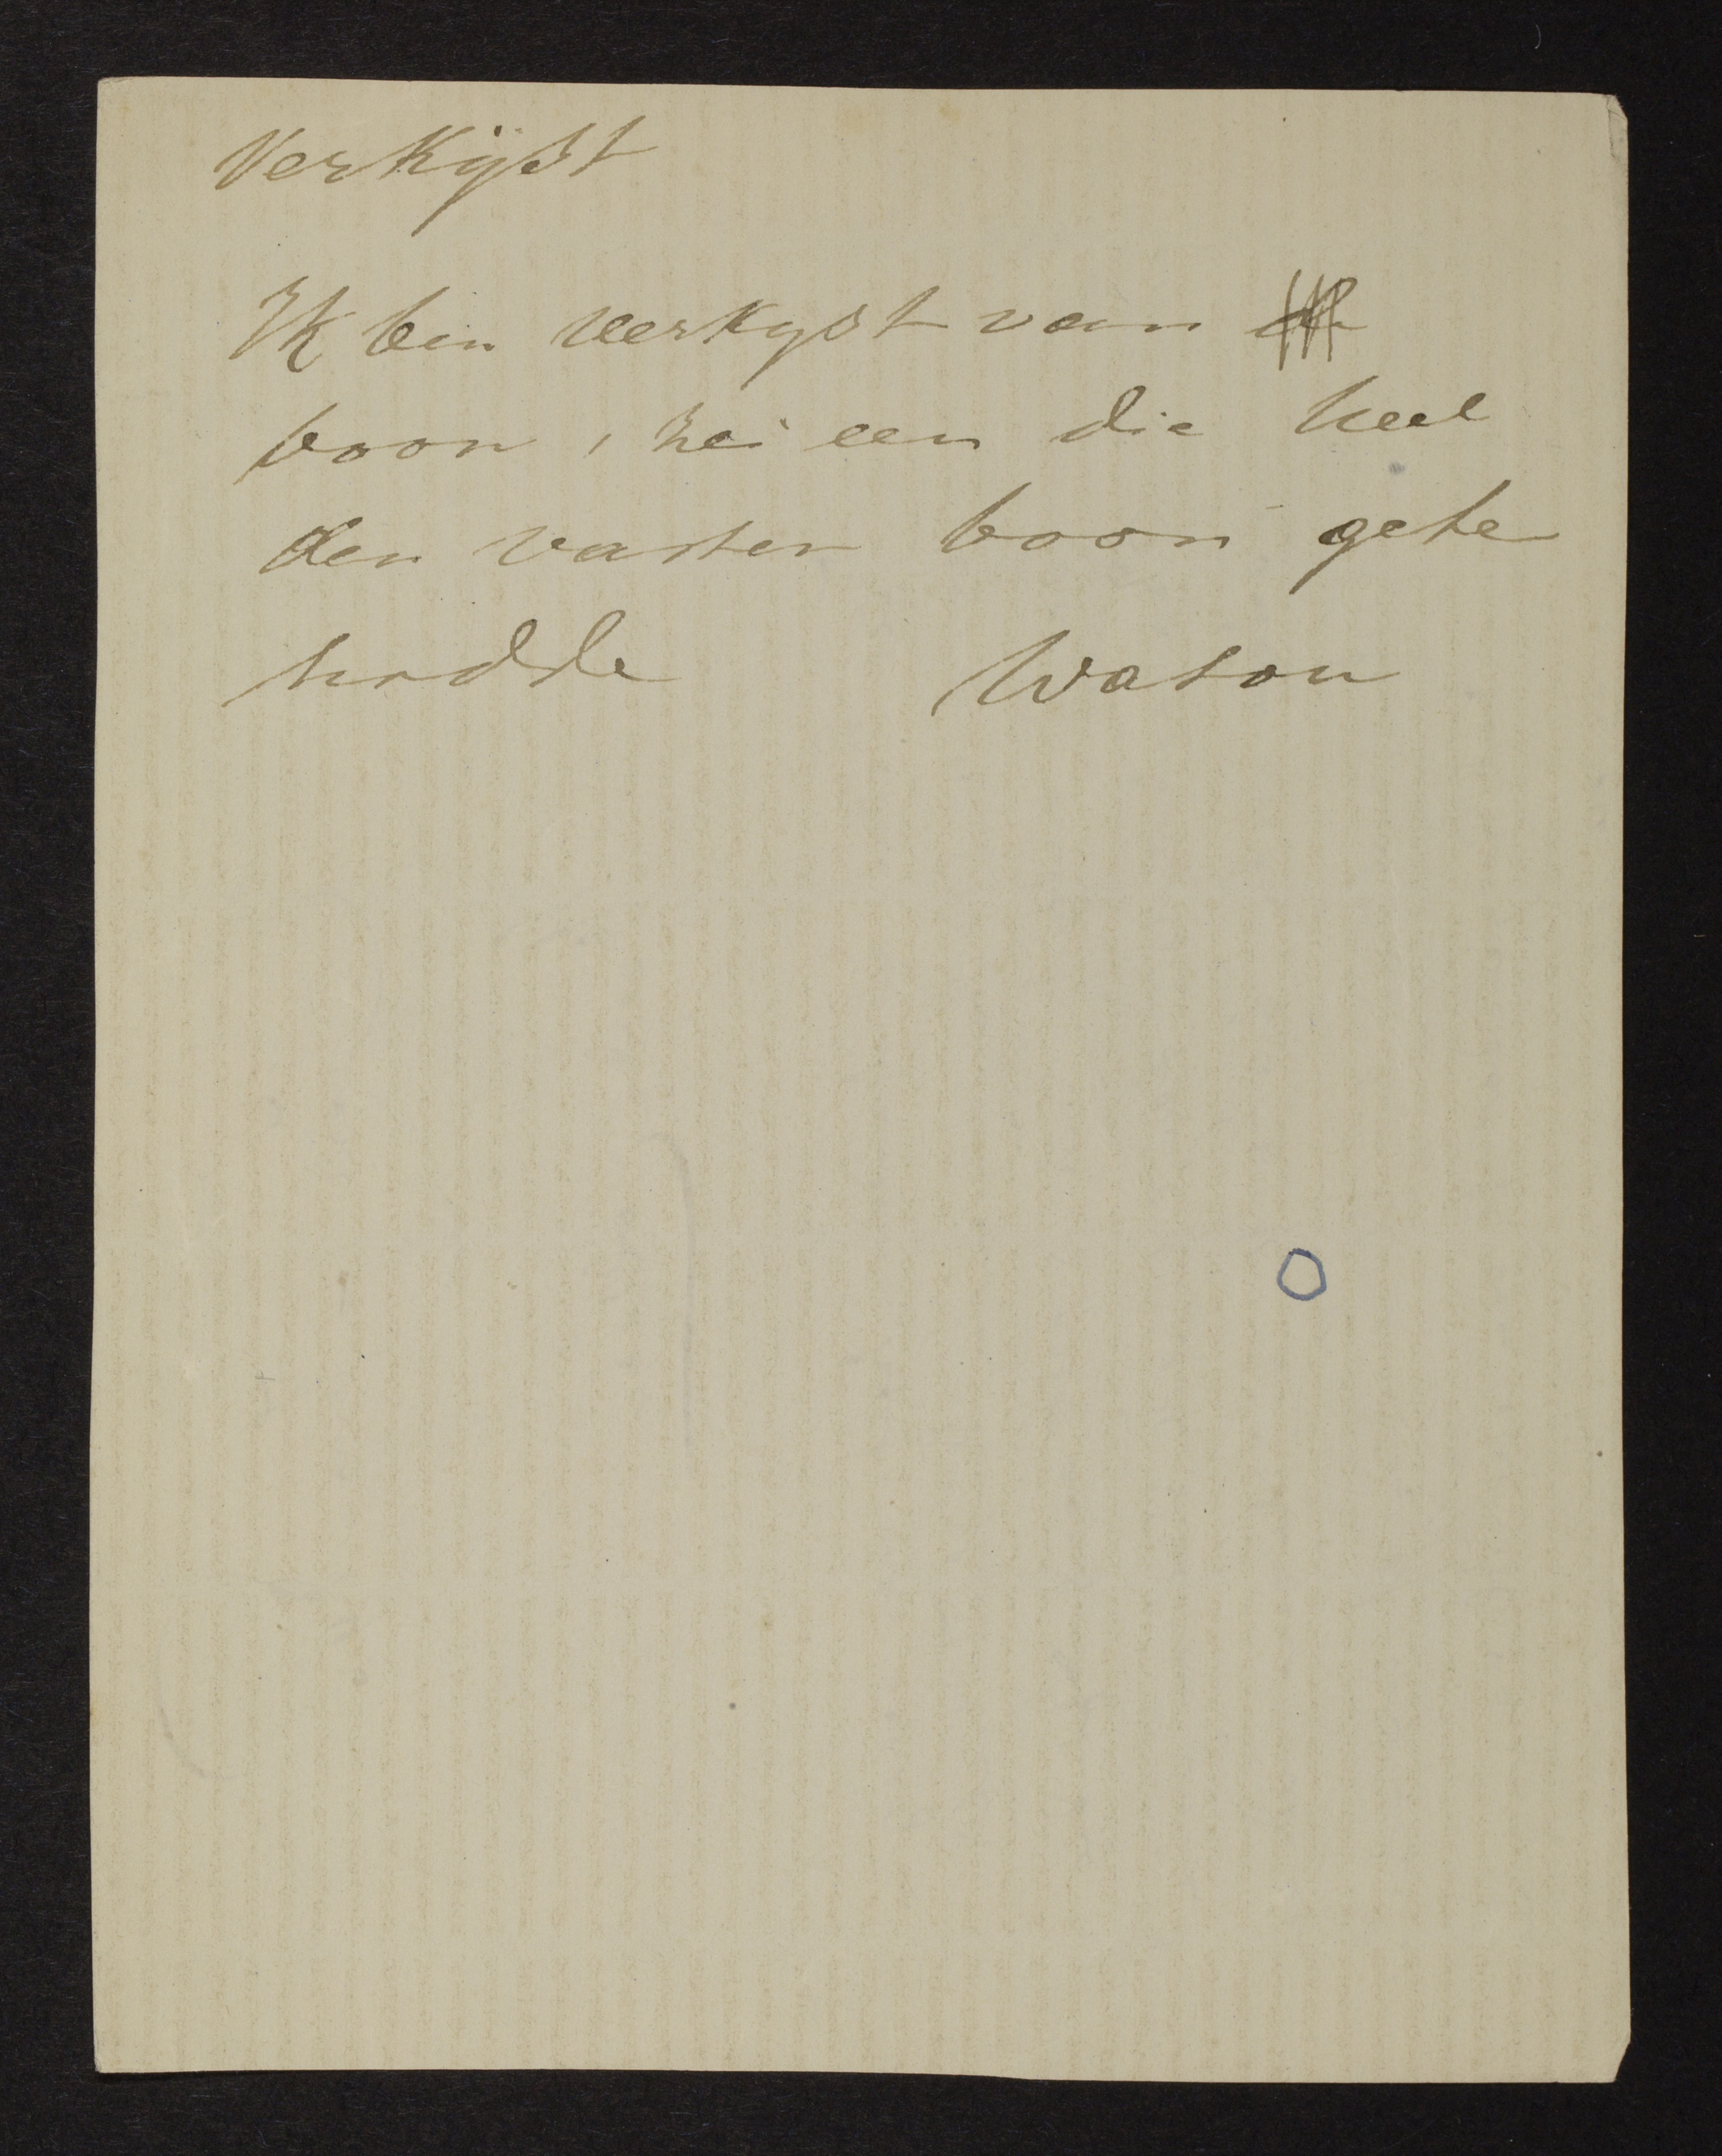 Verkijst
Ik ben verkyst van
boon, zei een die heel
den vasten boon gete
hadde Waton